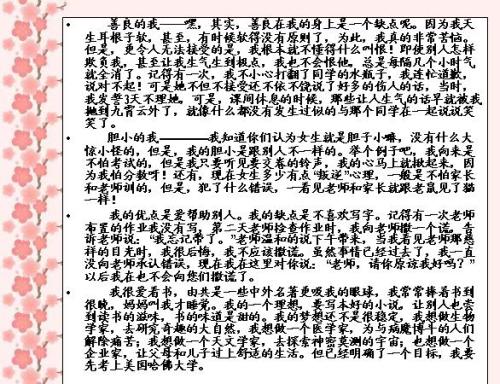 善良的我——嘿，其实，善良在我的身上是一个缺点呢。因为我天
生耳根子软，甚至，有时候软得没有原则了，为此，我真的非常苦恼。
但是，更令人无法接受的是，我根本就不懂得什么叫恨！即使别人怎样
欺负我，甚至让我生气生到极点，我也不会恨他。总是每隔几个小时气
就全消了。记得有一次，我不小心打翻了同学的水瓶子，我连忙道歉，
说对不起！可是她不但不接受还不依不饶说了好多的伤人的话，当时，
我发誓3天不理她。可是，课间休息的时候，那些让人生气的话早就被我
抛到九霄云外了，就像什么都没有发生过似的与那个同学在一起说说笑
笑了。
胆小的我————我知道你们认为女生就是胆子小嘛，没有什么大
惊小怪的，但是，我的胆小是跟别人不一样的。举个例子吧，我向来是
不怕考试的，但是我只要听见要交卷的铃声，我的心马上就揪起来，因
为我怕分数呀！还有，现在女生多少有点“叛逆”心理，一般是不怕家长
和老师训的，但是，犯了什么错误，一看见老师和家长就跟老鼠见了猫
一样！
我的优点是爱帮助别人。我的缺点是不喜欢写字。记得有一次老师
布置的作业我没有写，第二天老师检查作业时，我向老师撒一个谎。告
诉老师说：“我忘记带了。”老师温和的说下午带来，当我看见老师那慈
祥的目光时，我很后悔，我不应该撒谎。虽然事情已经过去了，我一直
没向老师承认错误，现在我在这里对你说：“老师，请你原谅我好吗？”
以后我在也不会向您们撒谎了。
我很爱看书，由其是一些中外名著更吸我的眼球，我常常捧着书到
很晚，妈妈叫我才睡觉。我的一个理想，要写本好的小说，让别人也尝
到读书的滋味，书的味道是甜的。我的梦想还不是很稳定，我想做生物
学家，去研究奇趣的大自然，我想做一个医学家，为与病魔博斗的人们
解除痛苦；我想做一个天文学家，去探索神密莫测的宇宙；也想做一个
企业家，让父母和儿子过上舒适的生活。但已经明确了一个目标，我要
先考上美国哈佛大学。